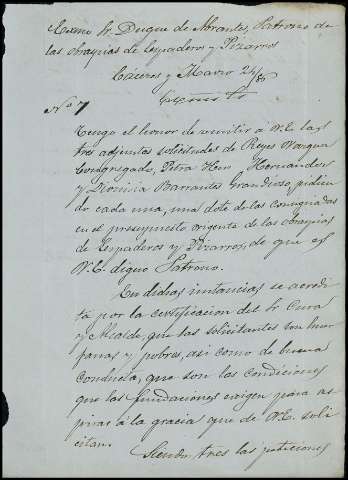 Excmo Sr. Duque de Abrantes, Patrono de
las obras pias de Espaderos y Pizarros
Cáceres y Marzo 24/85
Excmo Sr
Nº 7
Tengo el honor de remitir á V.E. las
tres adjuntas solicitudes de Reyes Vargas
Congregado, Petra Hernandez
y Dionisia Barrantes Grandioso, pidien
do cada una, una dote de las consignadas
en el presupuesto vigente de las obras pias
de Espaderos y Pizarros, de que es
V.E. digno Patrono.
En dichas instancias se acredi
ta por la certificacion del Sr Cura
y Alcalde, que las solicitantes son huer
fanas y pobres, asi como de buena
conducta, que son las condiciones
que las fundaciones exigen para as
pirar á la gracia que de V.E. soli
citan.
Siendo tres las peticiones